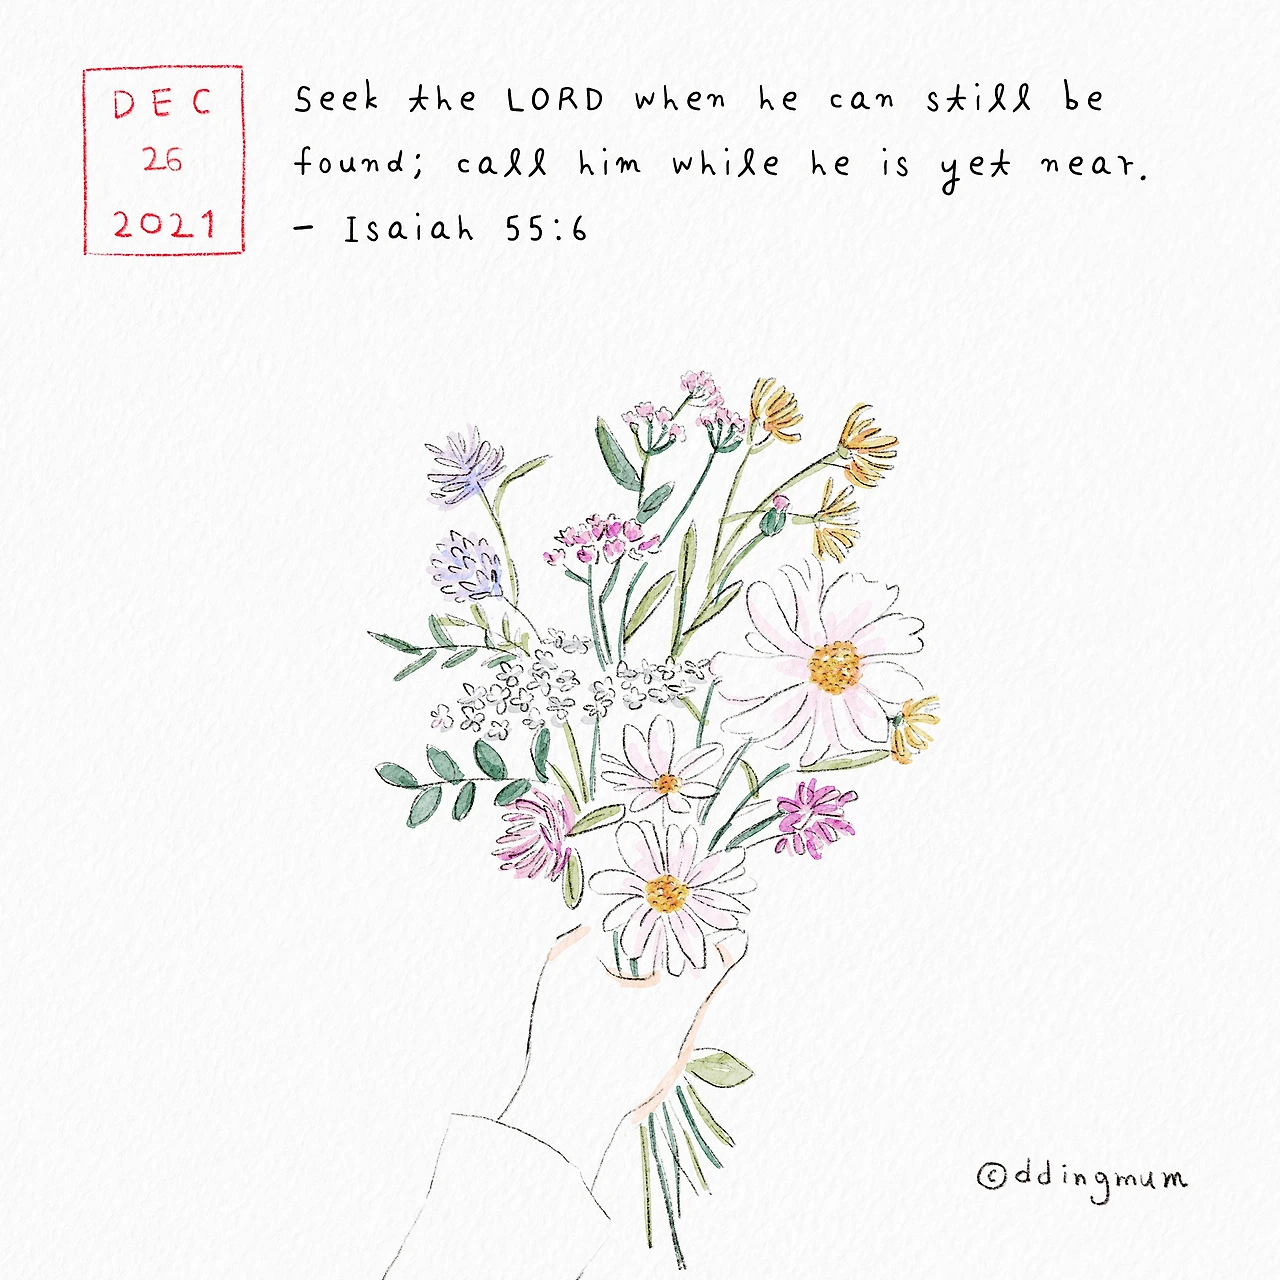 DEC
26
2021
Seek the LORD when he can still be
found; call him while he is yet near.
- Isaiah 55:6
©ddingmum